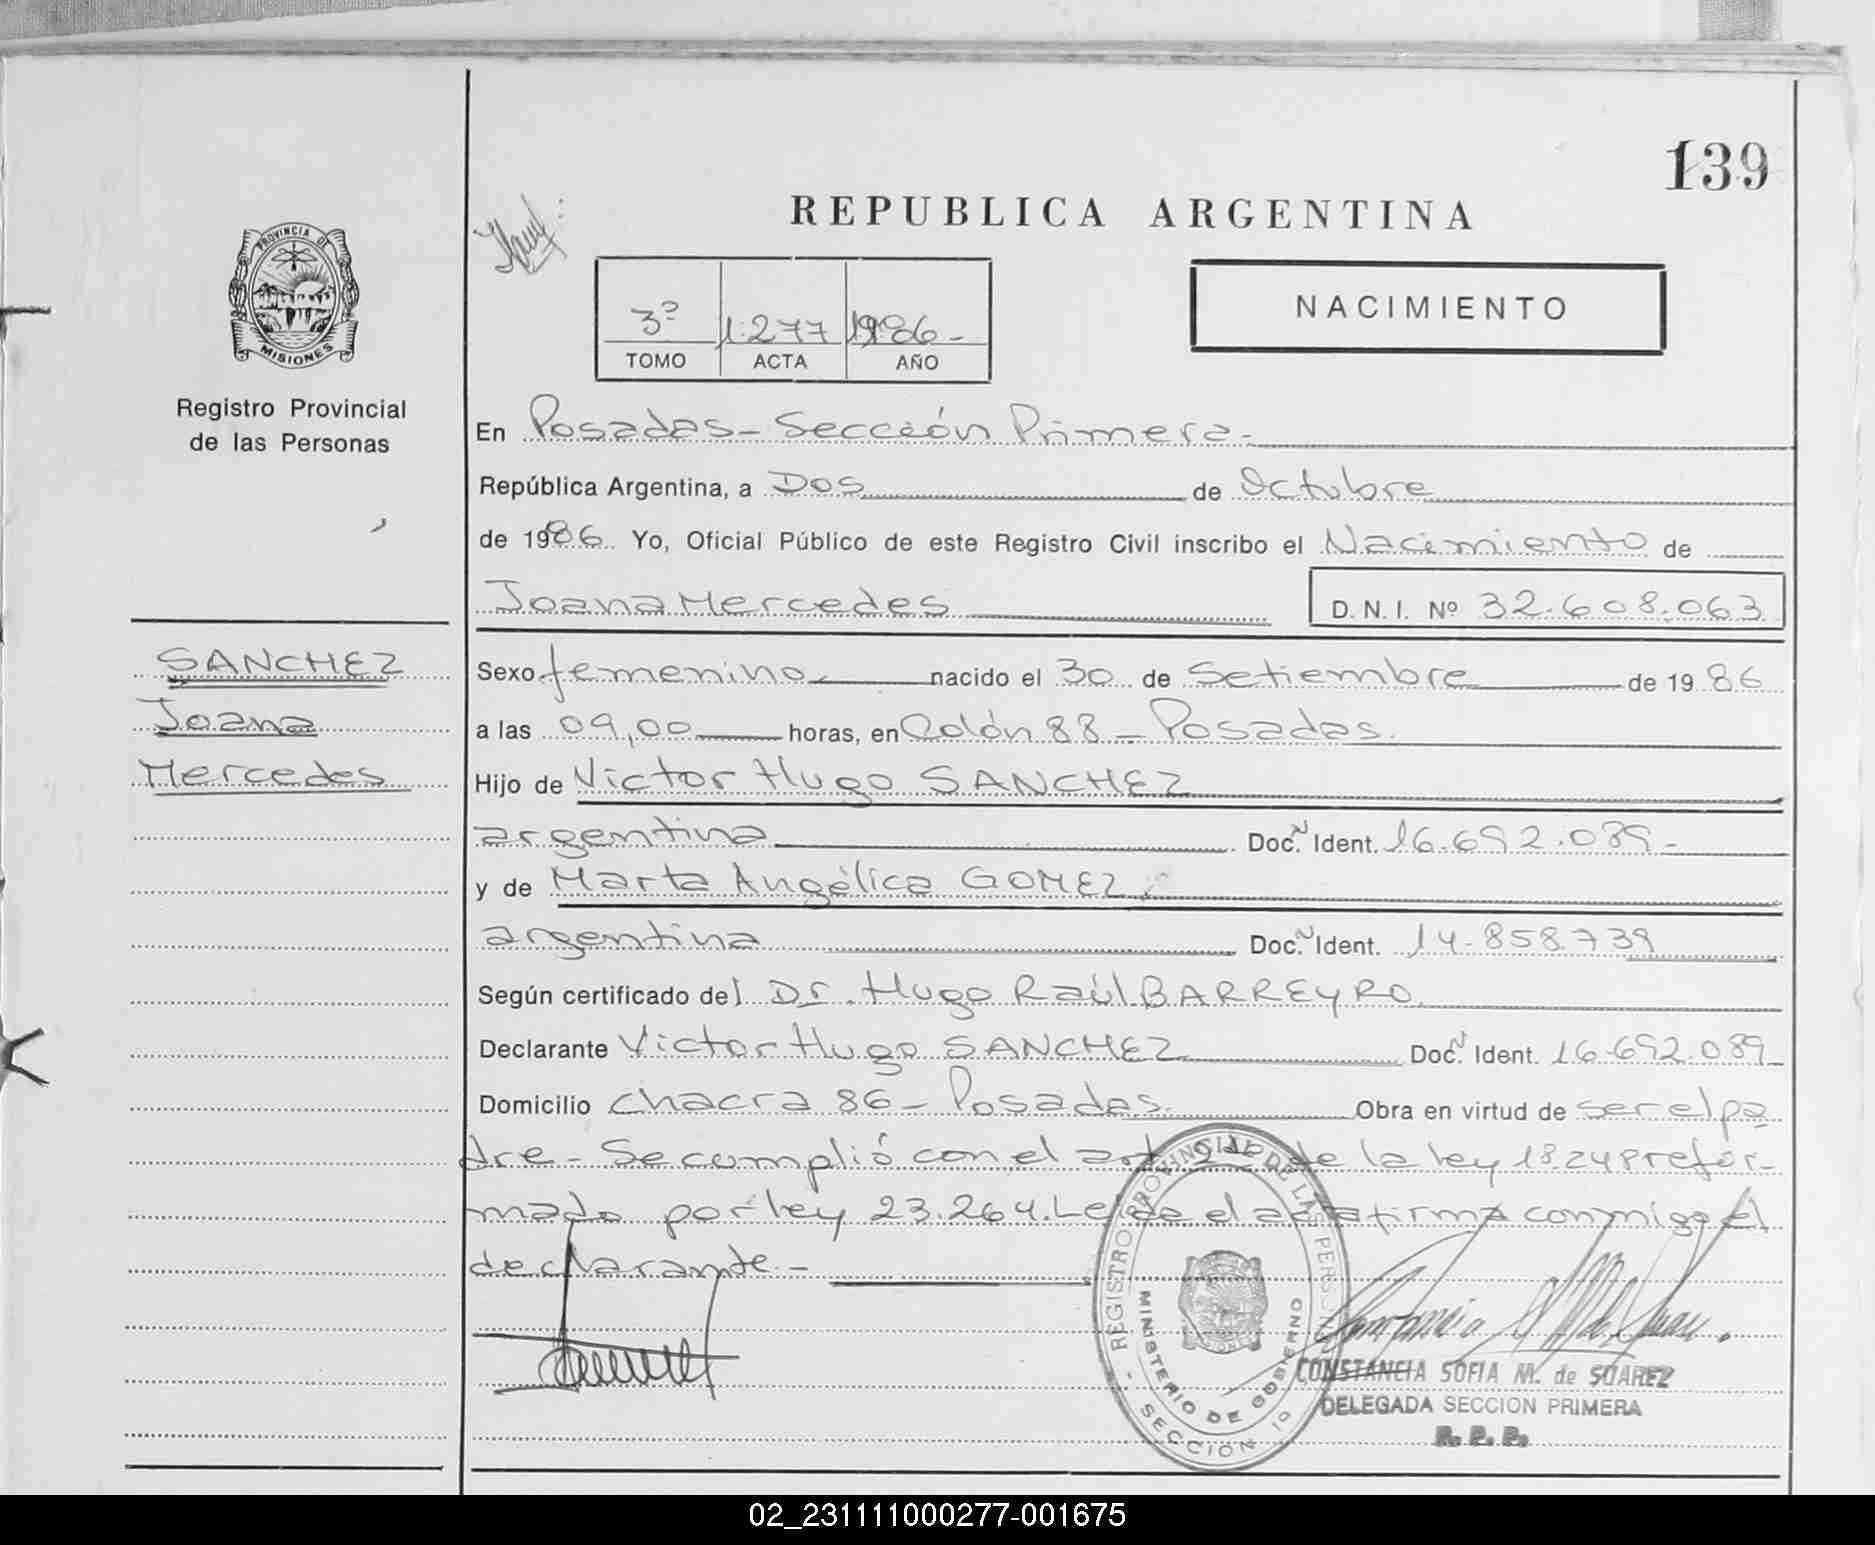 139
REPUBLICA ARGENTINA
PROVINCIA DE
MISIONES
Registro Provincial
de las Personas
3º 1.277 1986-
TOMO ACTA AÑO
NACIMIENTO
En Posadas - Sección Primera -
República Argentina, a Dos de Octubre
de 1986. Yo, Oficial Público de este Registro Civil inscribo el Nacimiento de
Joana Mercedes D.N.I. Nº 32.608.063
SANCHEZ
Joana
Mercedes
Sexo femenino nacido el 30 de Setiembre de 19 86
a las 09,00 horas, en Colón 88 - Posadas.
Hijo de Victor Hugo SANCHEZ
argentina Doc. Ident. 16.692.089 -
y de Marta Angélica GOMEZ
argentina Doc. Ident. 14.858.739
Según certificado del Dr. Hugo Raúl BARREYRO
Declarante Victor Hugo SANCHEZ Doc. Ident. 16.692.089
Domicilio chacra 86 - Posadas. Obra en virtud de ser el pa
dre - Se cumplió con el art. 2 de la ley 18.248 refor-
mada por ley 23.264. Leída el acta firma conmigo el
declarante. -
REGISTRO PROVINCIAL DE LAS PERSONAS
MINISTERIO DE GOBIERNO
SECCIÓN 1º
CONSTANCIA SOFIA M. de SUAREZ
DELEGADA SECCION PRIMERA
R. P. P.
02_231111000277-001675